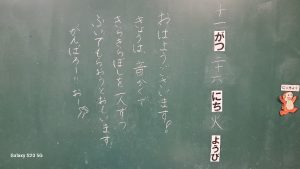 十一がつ二十六にち火ようび
おはようございます!
きょうは、音がくで
きらきらぼしを一人ずつ
ふいてもらおうとおもいます。
がんばろー!おー!
にっちょく
Galaxy S23 5G